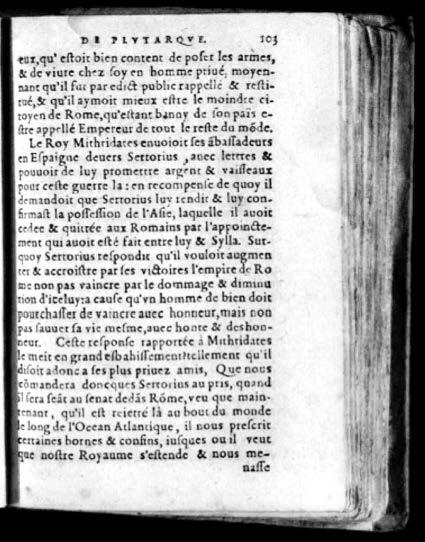 DE PLVTARQVE. 103
eux, qu'estoit bien content de poser les armes,
& de viure chez soy en homme priué, moyen-
nant qu'il fut par edict public rappellé & resti-
tué, & qu'il aymoit mieux estre le moindre ci-
toyen de Rome, qu'estant banny de son païs e-
stre appellé Empereur de tout le reste du mõde.
Le Roy Mithridates enuoioit ses ãbassadeurs
en Espaigne deuers Sertorius, auec lettres &
pouuoir de luy promettre argent & vaisseaux
pour ceste guerre la: en recompense de quoy il
demandoit que Sertorius luy rendit & luy con-
firmast la possession de l'Asie, laquelle il auoit
cedee & quittée aux Romains par l'appoincte-
ment qui auoit esté fait entre luy & Sylla. Sur-
quoy Sertorius respondit qu'il vouloit augmen
ter & accroistre par ses victoires l'empire de Ro
me non pas vaincre par le dommage & diminu
tion d'iceluy: a cause qu'vn homme de bien doit
pourchasser de vaincre auec honneur, mais non
pas sauuer sa vie mesme, auec honte & deshon-
neur. Ceste response rapportée à Mithridates
le meit en grand esbahissement: tellement qu'il
disoit adonc a ses plus priuez amis, Que nous
cõmandera doncques Sertorius au pris, quand
il sera seãt au senat dedãs Rõme, veu que main-
tenant, qu'il est reietté là au bout du monde
le long de l'Ocean Atlantique, il nous prescrit
certaines bornes & confins, iusques ou il veut
que nostre Royaume s'estende & nous me-
nasse